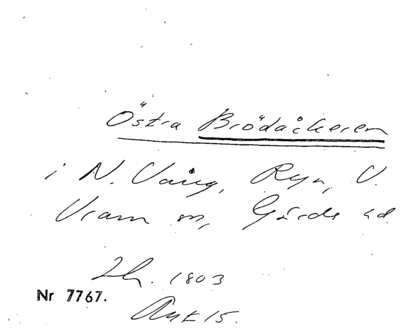 Östra Brödåckeren
i N. Vång, Ryr, V.
Vram sn, Gärds hd
Lh. 1803
Nr 7767.
Akt 15.